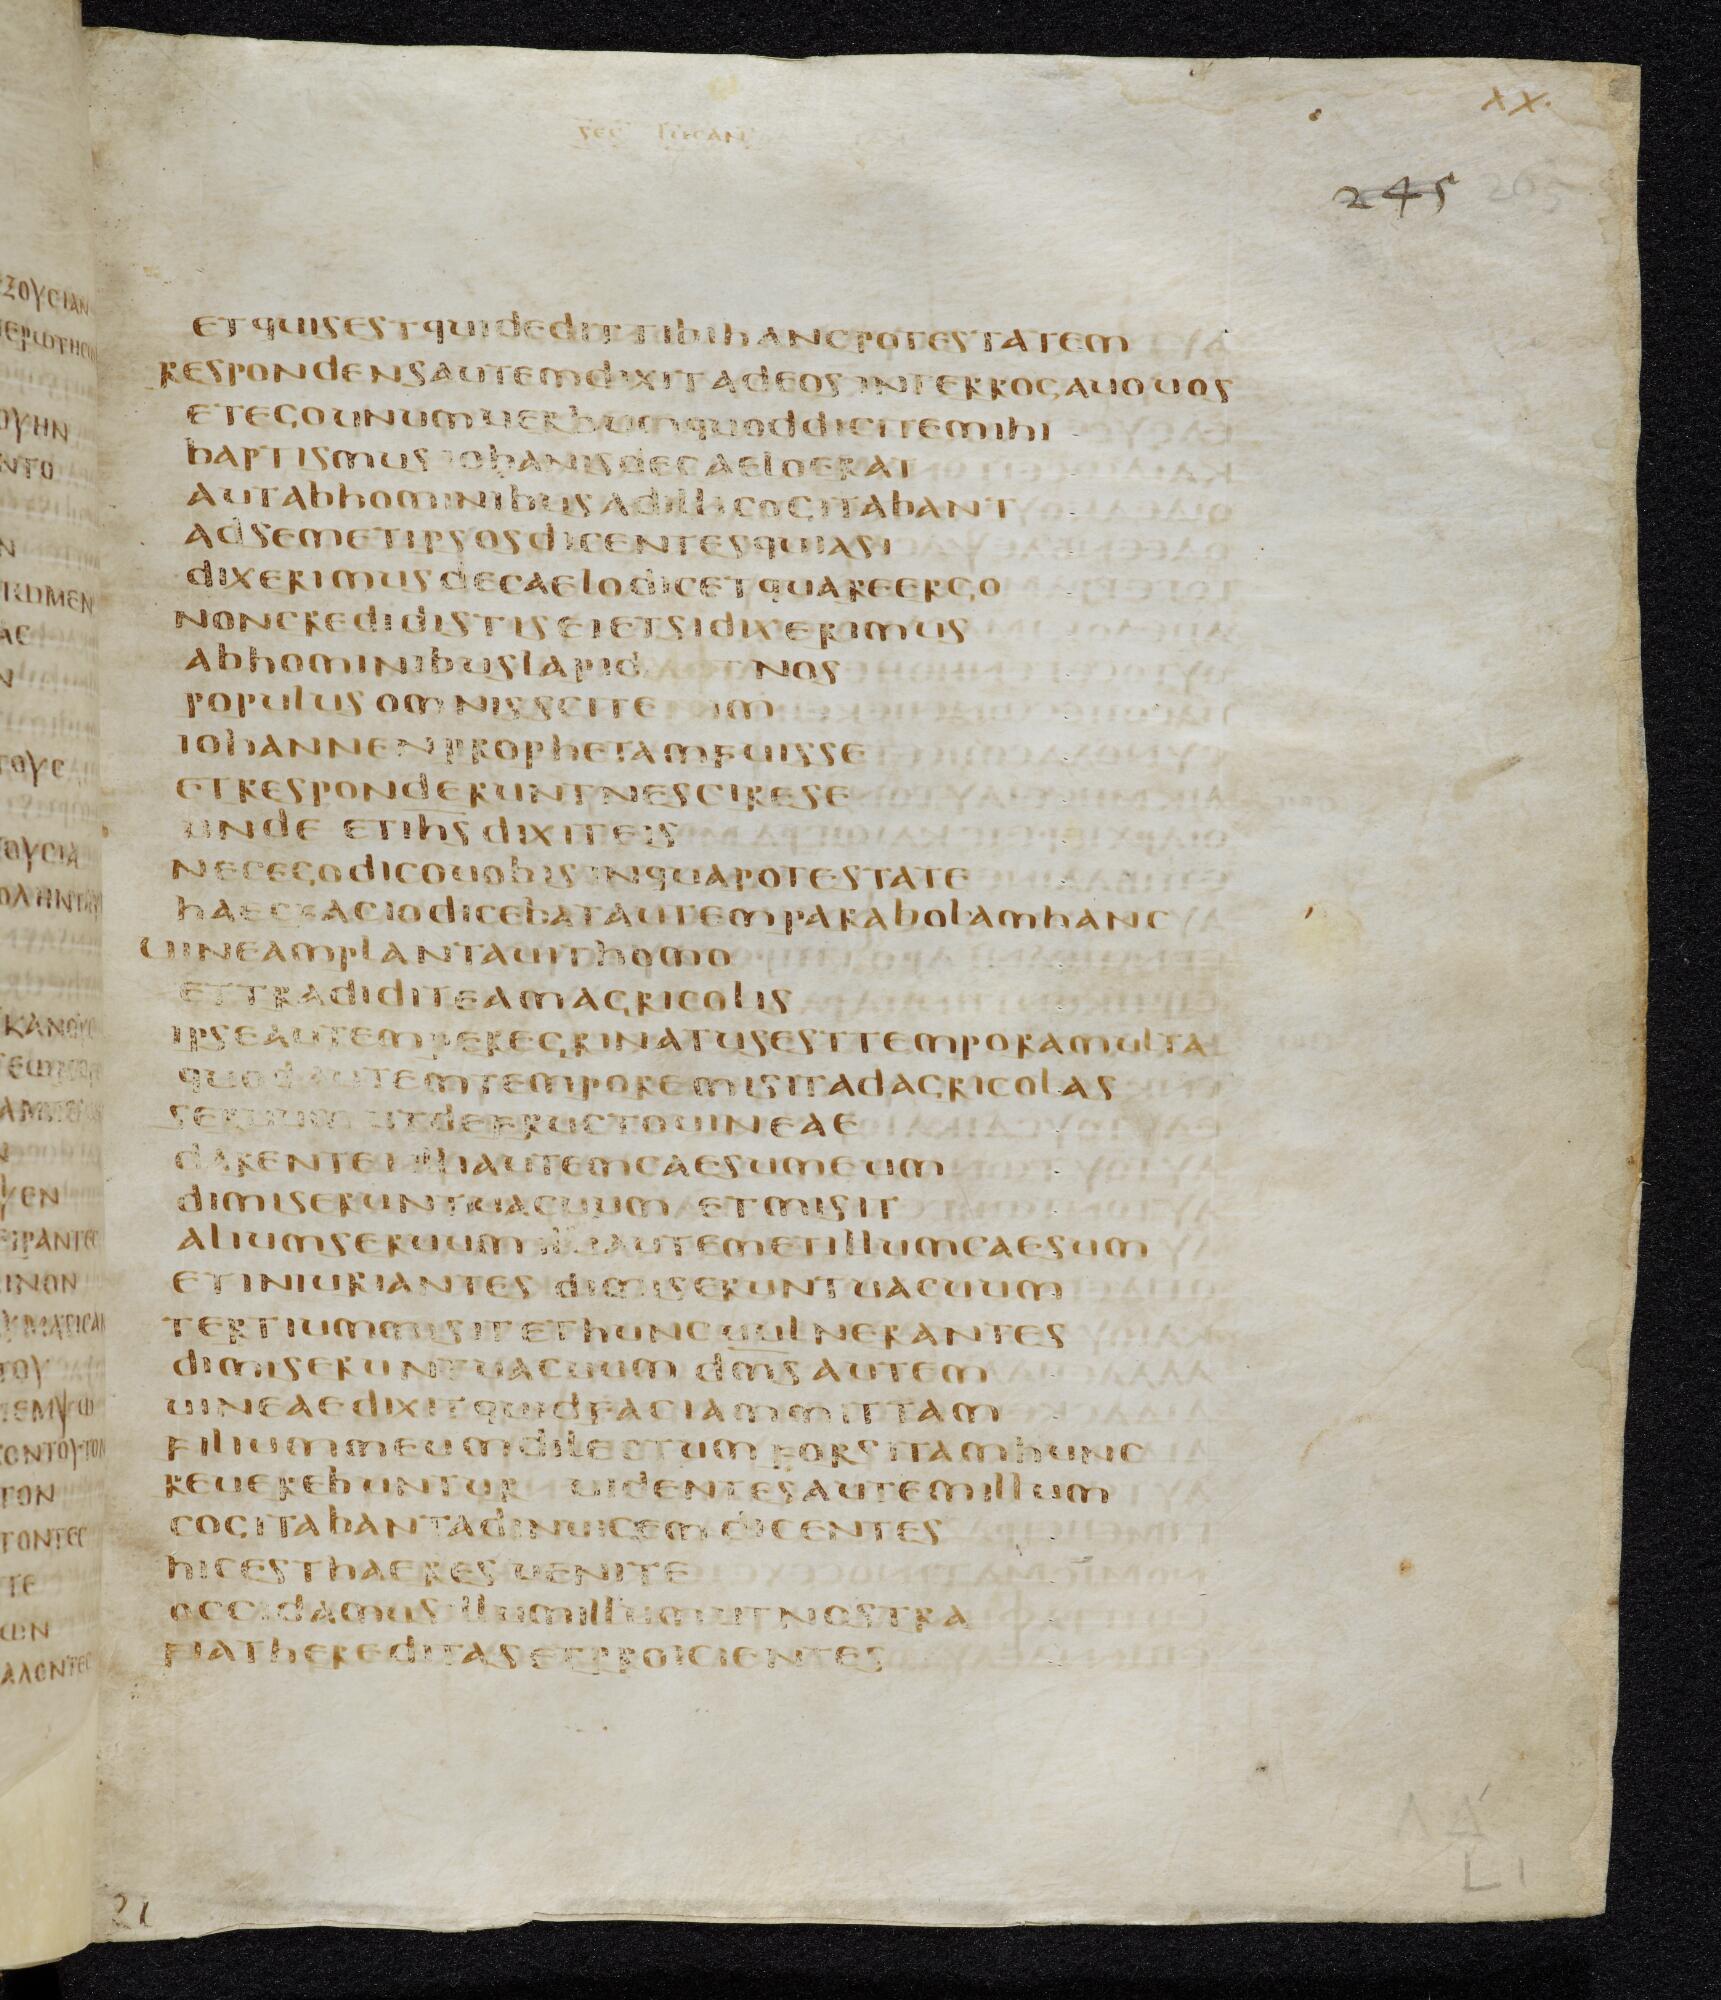 XX.
sec lucan
245 265
ΞΟΥCΙΑΝ
ΟΥΗΝ
ΝΤΟ
ΤΟΥC
ΙΝΟΝ
ΤΟΥ
ΤΟΝ
ΤΟΝΤΕC
ΤΕ
ΩΝ
ΑΛΟΝΤΕC
etquisestquidedittibihancpotestatem
respondensautemdixitadeosinterrogauouos
etegounumuerbumquoddicitemihi
baptismusiohanisdecaeloerat
autabhominibusadillicogitabant
adsemetipsosdicentesquiasi
dixerimusdecaelodicetquareergo
noncredidistiseietsidixerimus
abhominibuslapid nos
populusomnisscite im
iohannenprophetamfuisse
etresponderuntnescirese
unde etihsdixiteis
necegodicouobisinquapotestate
haecfaciodicebatautemparabolamhanc
uineamplantauithomo
ettradiditeamagricolis
ipseautemperegrinatusesttemporamulta
quodautemtemporemisitadagricolas
seruumutdefructouineae
darenteiilliautemcaesumeum
dimiseruntuacuum etmisit
aliumseruumilliautemetillumcaesum
etiniuriantes dimiseruntuacuum
tertiummisitethuncuulnerantes
dimiseruntuacuum dmsautem
uineaedixitquidfaciammittam
filiummeumdilectumforsitamhunc
reuerebuntur uidentesautemillum
cogitabantadinuicemdicentes
hicesthaeresuenite
occidamusillumillumutnostra
fiathereditasetproicientes
21